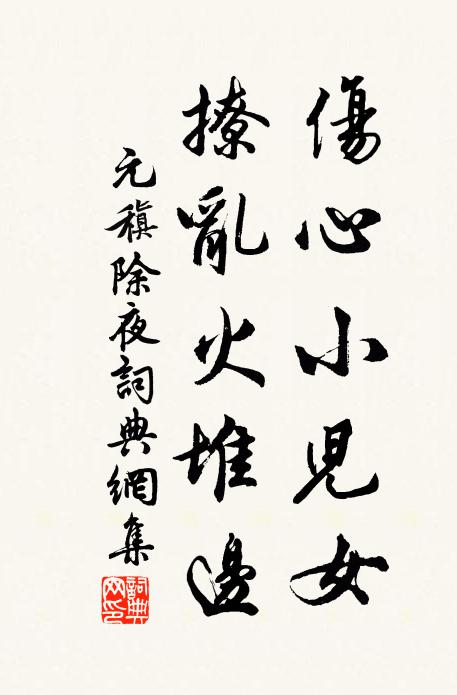 傷心小兒女
撩亂火堆邊
元稹除夜詞典網集
詞典網印